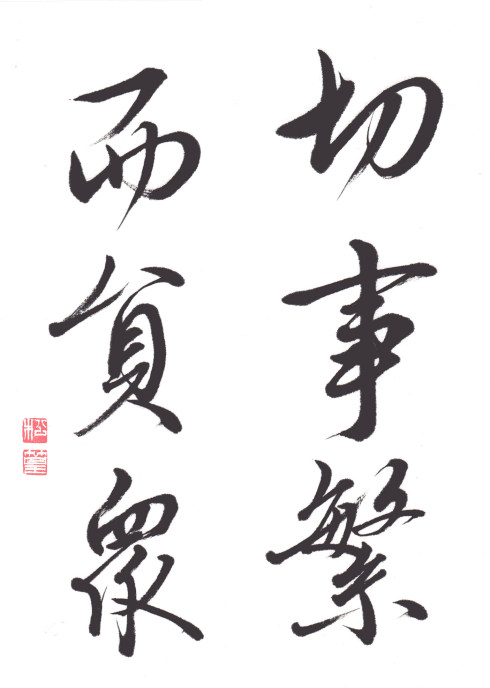 切事繁
而貧衆